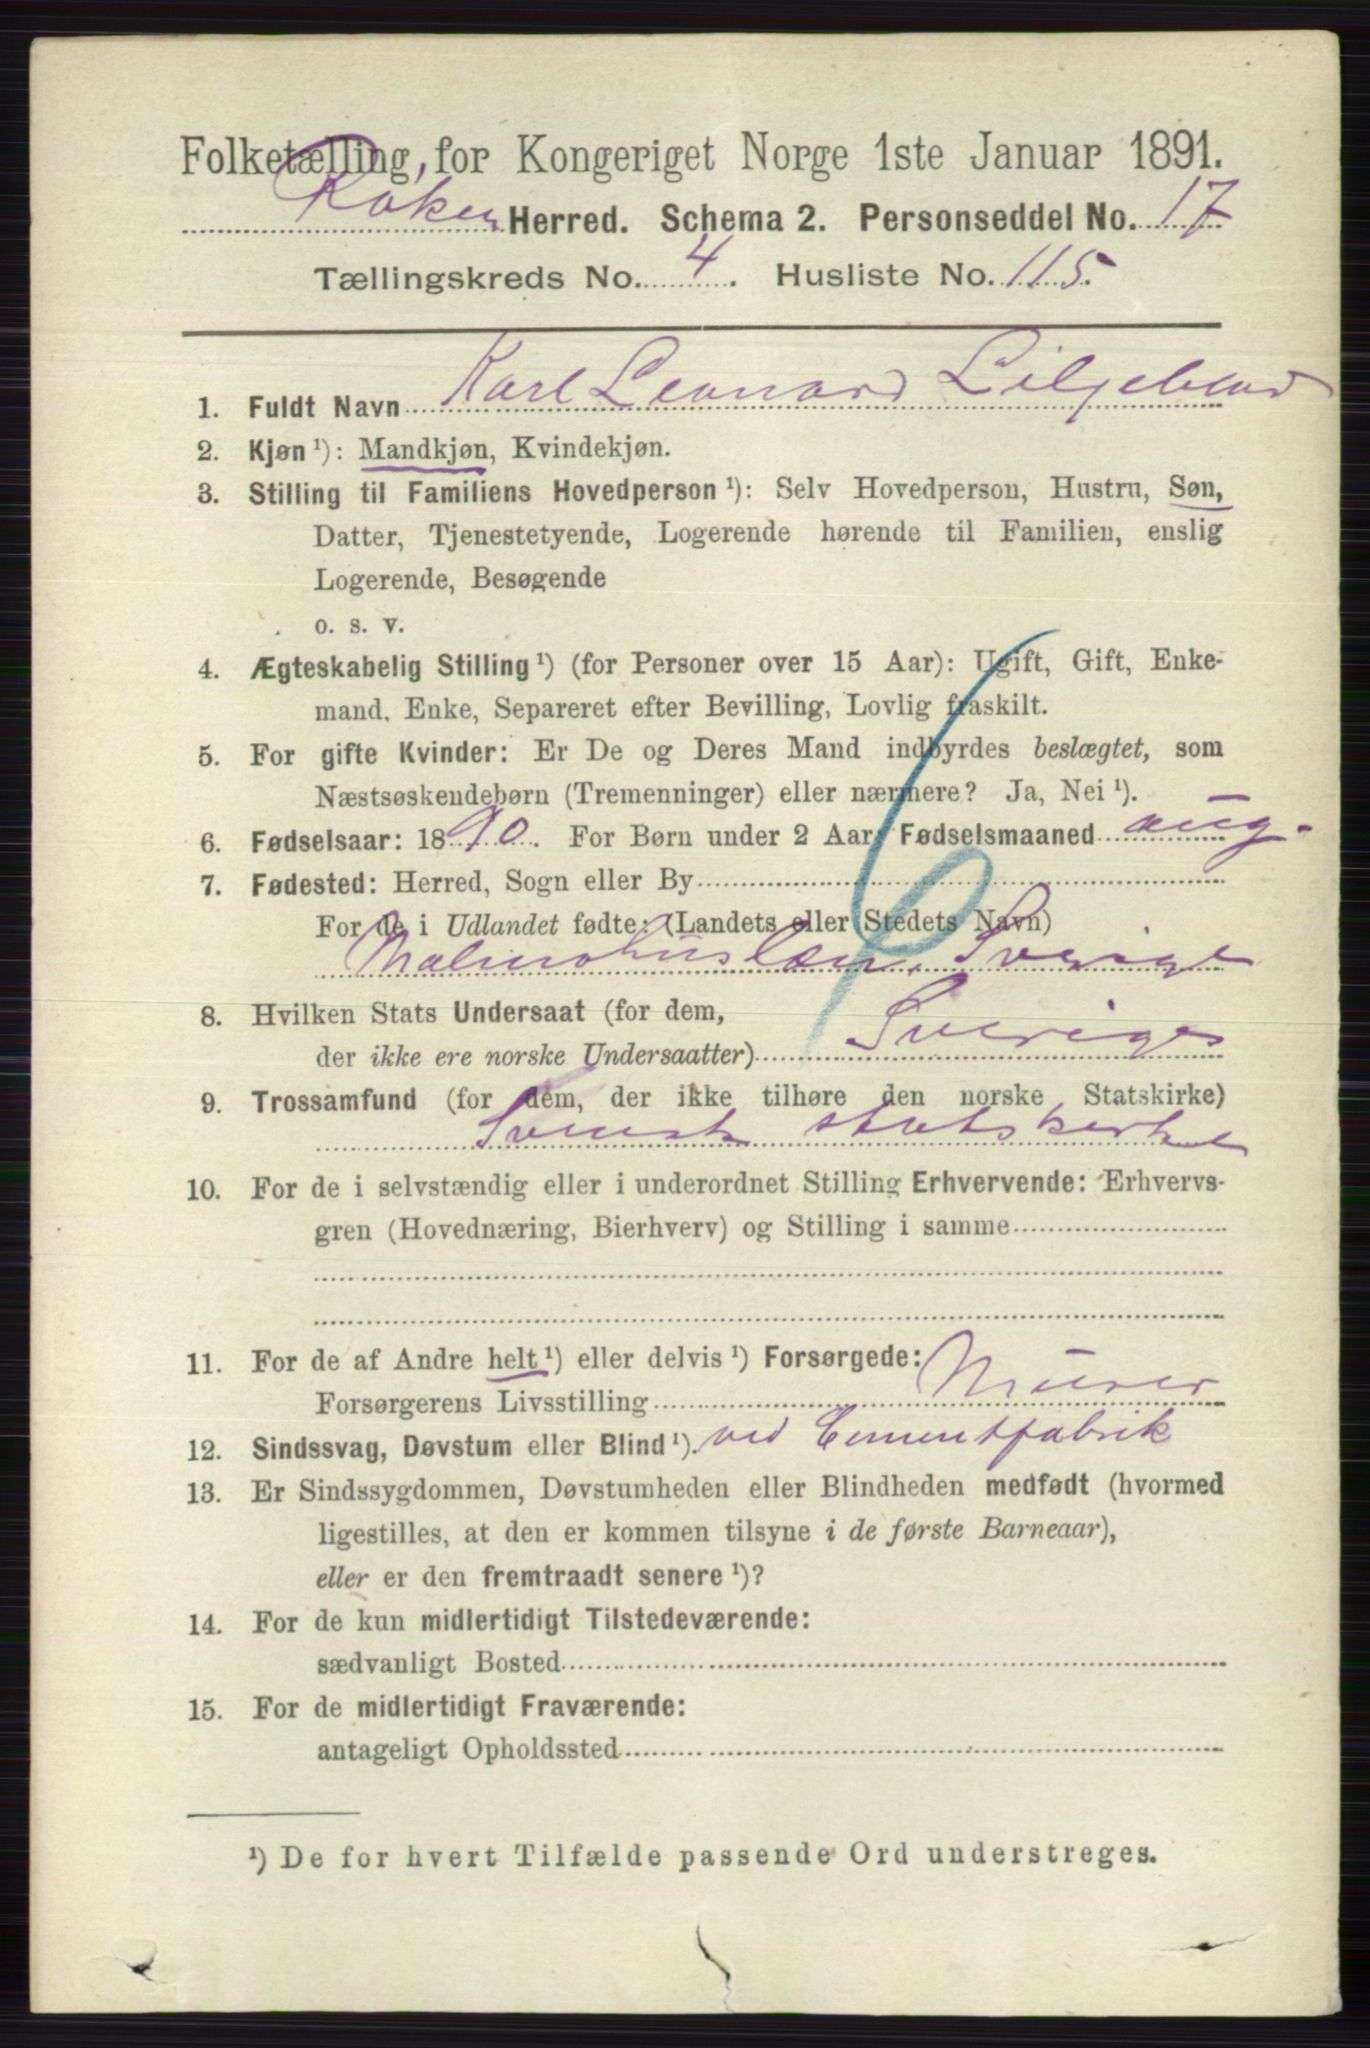 Folketælling for Kongeriget Norge 1ste Januar 1891.
Røken Herred. Schema 2. Personseddel No. 17
Tællingskreds No. 4. Husliste No. 115.
1. Fuldt Navn Karl Leonard Liljeblad
2. Kjøn ¹): Mandkjøn, Kvindekjøn.
3. Stilling til Familiens Hovedperson ¹): Selv Hovedperson, Hustru, Søn,
Datter, Tjenestetyende, Logerende hørende til Familien, enslig
Logerende, Besøgende
o. s. v.
4. Ægteskabelig Stilling ¹) (for Personer over 15 Aar): Ugift, Gift, Enke-
mand, Enke, Separeret efter Bevilling, Lovlig fraskilt.
5. For gifte Kvinder: Er De og Deres Mand indbyrdes beslægtet, som
Næstsøskendebørn (Tremenninger) eller nærmere? Ja, Nei ¹).
6. Fødselsaar: 1890. For Børn under 2 Aar: Fødselsmaaned aug.
7. Fødested: Herred, Sogn eller By
For de i Udlandet fødte: (Landets eller Stedets Navn)
Malmøhuslæn, Sverige
8. Hvilken Stats Undersaat (for dem,
der ikke ere norske Undersaatter) Sverige
9. Trossamfund (for dem, der ikke tilhøre den norske Statskirke)
Svensk statskirke
10. For de i selvstændig eller i underordnet Stilling Erhvervende: Erhvervs-
gren (Hovednæring, Bierhverv) og Stilling i samme
11. For de af Andre helt ¹) eller delvis ¹) Forsørgede:
Forsørgerens Livsstilling Murer
12. Sindssvag, Døvstum eller Blind ¹). ved Cementfabrik
13. Er Sindssygdommen, Døvstumheden eller Blindheden medfødt (hvormed
ligestilles, at den er kommen tilsyne i de første Barneaar),
eller er den fremtraadt senere ¹)?
14. For de kun midlertidigt Tilstedeværende:
sædvanligt Bosted
15. For de midlertidigt Fraværende:
antageligt Opholdssted
¹) De for hvert Tilfælde passende Ord understreges.